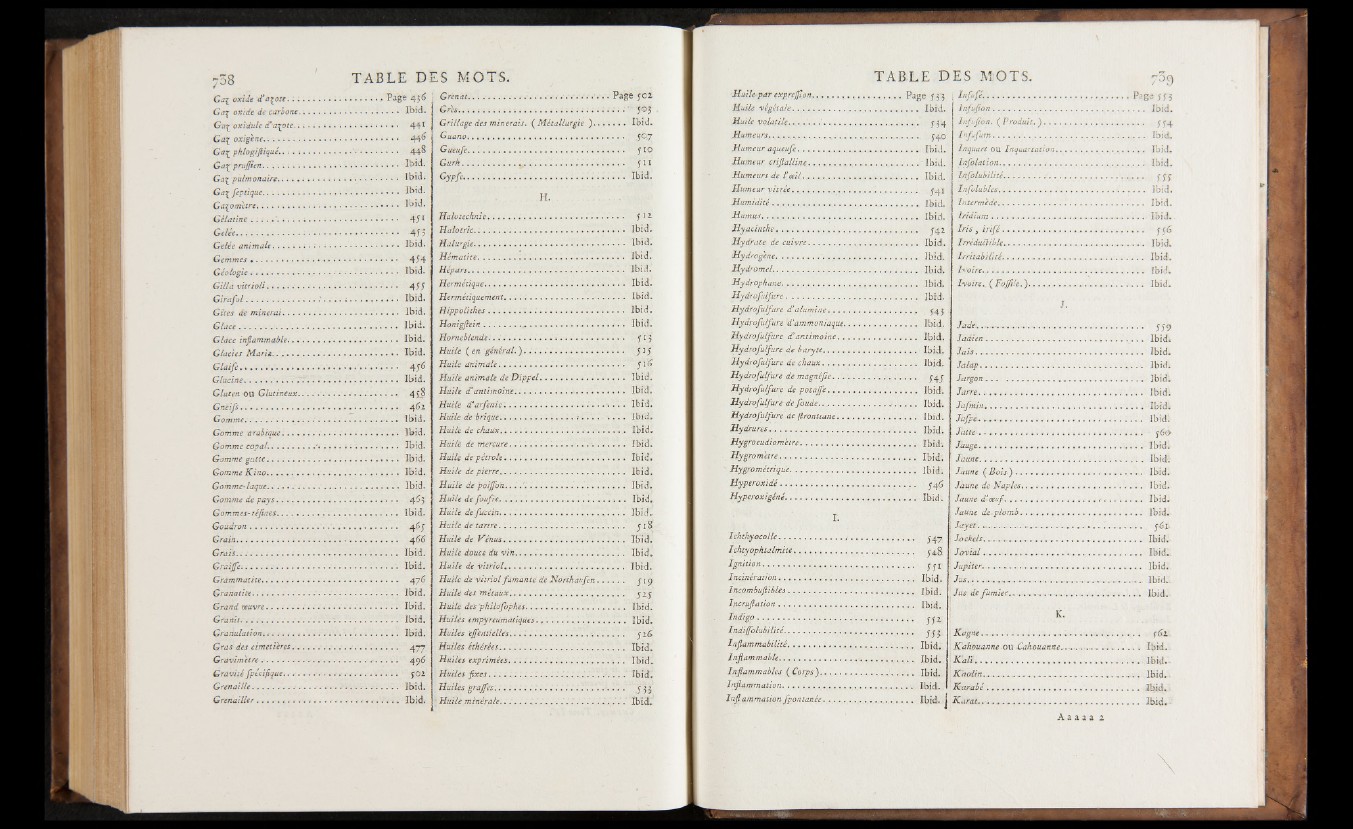 738 TABLE DES MOTS.
Gaz oxide d'azote.................. Page 436
Gaz oxide de carbone.................. Ibid.
Gaz oxidule d'azote.................. 441
Gaz oxigène.................. 446
Gaz phlogiſtiqué.................. 448
Gaz pruſſien.................. Ibid.
Gaz pulmonaire.................. Ibid.
Gaz ſeptique.................. Ibid.
Gazomètre.................. Ibid.
Gélatine.................. 451
Gelée.................. 453
Gelée animale.................. Ibid.
Gemmes.................. 454
Géologie.................. Ibid.
Gilla vitrioli.................. 455
Giraſol.................. Ibid.
Gîtes de minerai.................. Ibid.
Glace.................. Ibid.
Glace inflammable.................. Ibid.
Glacies Mariæ.................. Ibid.
Glaiſe.................. 456
Glucine.................. Ibid.
Gluten ou Glutineux.................. 458
Gneiſs.................. 462
Gomme.................. Ibid.
Gomme arabique.................. Ibid.
Gomme copal.................. Ibid.
Gomme gutte.................. Ibid.
Gomme Kino.................. Ibid.
Gomme-laque.................. Ibid.
Gomme de pays.................. 463
Gommes-réſines.................. Ibid.
Goudron.................. 465
Grain.................. 466
Grais.................. Ibid.
Graiſſe.................. Ibid.
Grammatite.................. 476
Granatite.................. Ibid.
Grand œuvre.................. Ibid.
Granit.................. Ibid.
Granulation.................. Ibid.
Gras des cimetières.................. 477
Gravimètre.................. 496
Gravité ſpécifique.................. 502
Grenaille.................. Ibid.
Grenailler.................. Ibid.
Grenat.................. Page 502
Grès.................. 503
Grillage des minerais. ( Métallurgie )....... Ibid.
Guano.................. 507
Gueuſe.................. 510
Gurh.................. 511
Gypſe.................. Ibid.
H.
Halotechnie.................. 512
Haloeric.................. Ibid.
Halurgie.................. Ibid.
Hématite.................. Ibid.
Hépars.................. Ibid.
Hermétique.................. Ibid.
Hermétiquement.................. Ibid.
Hippolithes.................. Ibid.
Honigſtein.................. Ibid.
Horneblende.................. 513
Huile ( en général.).................. 515
Huile animale.................. 516
Huile animale de Dippel.................. Ibid.
Huile d'antimoine.................. Ibid.
Huile d'arſenic.................. Ibid.
Huile de brique.................. Ibid.
Huile de chaux.................. Ibid.
Huile de mercure.................. Ibid.
Huile de pétrole.................. Ibid.
Huile de pierre.................. Ibid.
Huile de poiſſon.................. Ibid.
Huile de ſoufre.................. Ibid.
Huile de ſuccin.................. Ibid.
Huile de tartre.................. 518
Huile de Vénus.................. Ibid.
Huile douce du vin.................. Ibid.
Huile de vitriol.................. Ibid.
Huile de vitriol fumante de Northauſen...... 519
Huile des métaux.................. 525
Huile des philoſophes.................. Ibid.
Huiles empyreumatiques.................. Ibid.
Huiles eſſentielles.................. 526
Huiles éthérées.................. Ibid.
Huiles exprimées.................. Ibid.
Huiles fixes.................. Ibid.
Huiles graſſes.................. 533
Huile minérale.................. Ibid.
TABLE DES MOTS. 739
Huile par expreſſion.................. Page 533
Huile végétale.................. Ibid.
Huile volatile.................. 534
Humeurs.................. 540
Humeur aqueuſe.................. Ibid.
Humeur criſtalline.................. Ibid.
Humeurs de l'œil.................. Ibid.
Humeur vitrée.................. 541
Humidité.................. Ibid.
Humus.................. Ibid.
Hyacinthe.................. 542
Hydrate de cuivre.................. Ibid.
Hydrogène.................. Ibid.
Hydromel.................. Ibid.
Hydrophane.................. Ibid.
Hydroſulfure.................. Ibid.
Hydroſulfure d'alumine.................. 543
Hydroſulfure d'ammoniaque.................. Ibid.
Hydroſulfure d'antimoine.................. Ibid.
Hydroſulfure de baryte.................. Ibid.
Hydroſulfure de chaux.................. Ibid.
Hydroſulfure de magnéſie.................. 545
Hydroſulfure de potaſſe.................. Ibid.
Hydroſulfure de ſoude.................. Ibid.
Hydroſulfure de ſtrontiane.................. Ibid.
Hydrures.................. Ibid.
Hygroeudiomètre.................. Ibid.
Hygromètre.................. Ibid.
Hygrométrique.................. Ibid.
Hyperoxidé.................. 546
Hyperoxigéné.................. Ibid.
I.
Ichthyocolle.................. 547
Ichtyophtalmite.................. 548
Ignition.................. 551
Incinération.................. Ibid.
Incombuſtibles.................. Ibid.
Incruſtation.................. Ibid.
Indigo.................. 552
Indiſſolubilité.................. 553
Inflammabilité.................. Ibid.
Inflammable.................. Ibid.
Inflammables ( Corps ).................. Ibid.
Inflammation.................. Ibid.
Inflammation ſpontanée.................. Ibid.
Infuſé.................. Page 553
Infuſion.................. Ibid.
Infuſion. ( Produit.).................. 554
Infuſum.................. Ibid.
Inquart ou Inquartation.................. Ibid.
Inſolation.................. Ibid.
Inſolubilité.................. 555
Inſolubles.................. Ibid.
Intermède.................. Ibid.
Iridium.................. Ibid.
Iris , iriſé.................. 556
Irréductible.................. Ibid.
Irritabilité.................. Ibid.
Ivoire.................. Ibid.
Ivoire. ( Foſſile.).................. Ibid.
J.
Jade.................. 559
Jadien.................. Ibid.
Jais.................. Ibid.
Jalap.................. Ibid.
Jargon.................. Ibid.
Jarre.................. Ibid.
Jaſmin.................. Ibid.
Jaſpe.................. Ibid.
Jatte.................. 560
Jauge.................. Ibid.
Jaune.................. Ibid.
Jaune ( Bois ).................. Ibid.
Jaune de Naples.................. Ibid.
Jaune d'œuf.................. Ibid.
Jaune de plomb.................. Ibid.
Jayet.................. 561
Jockels.................. Ibid.
Jovial.................. Ibid.
Jupiter.................. Ibid.
Jus.................. Ibid.
Jus de fumier.................. Ibid.
K.
Kagne.................. 562
Kahouanne ou Cahouanne.................. Ibid.
Kali.................. Ibid.
Kaolin.................. Ibid.
Karabé.................. Ibid.
Karat.................. Ibid.
Aaaaa 2